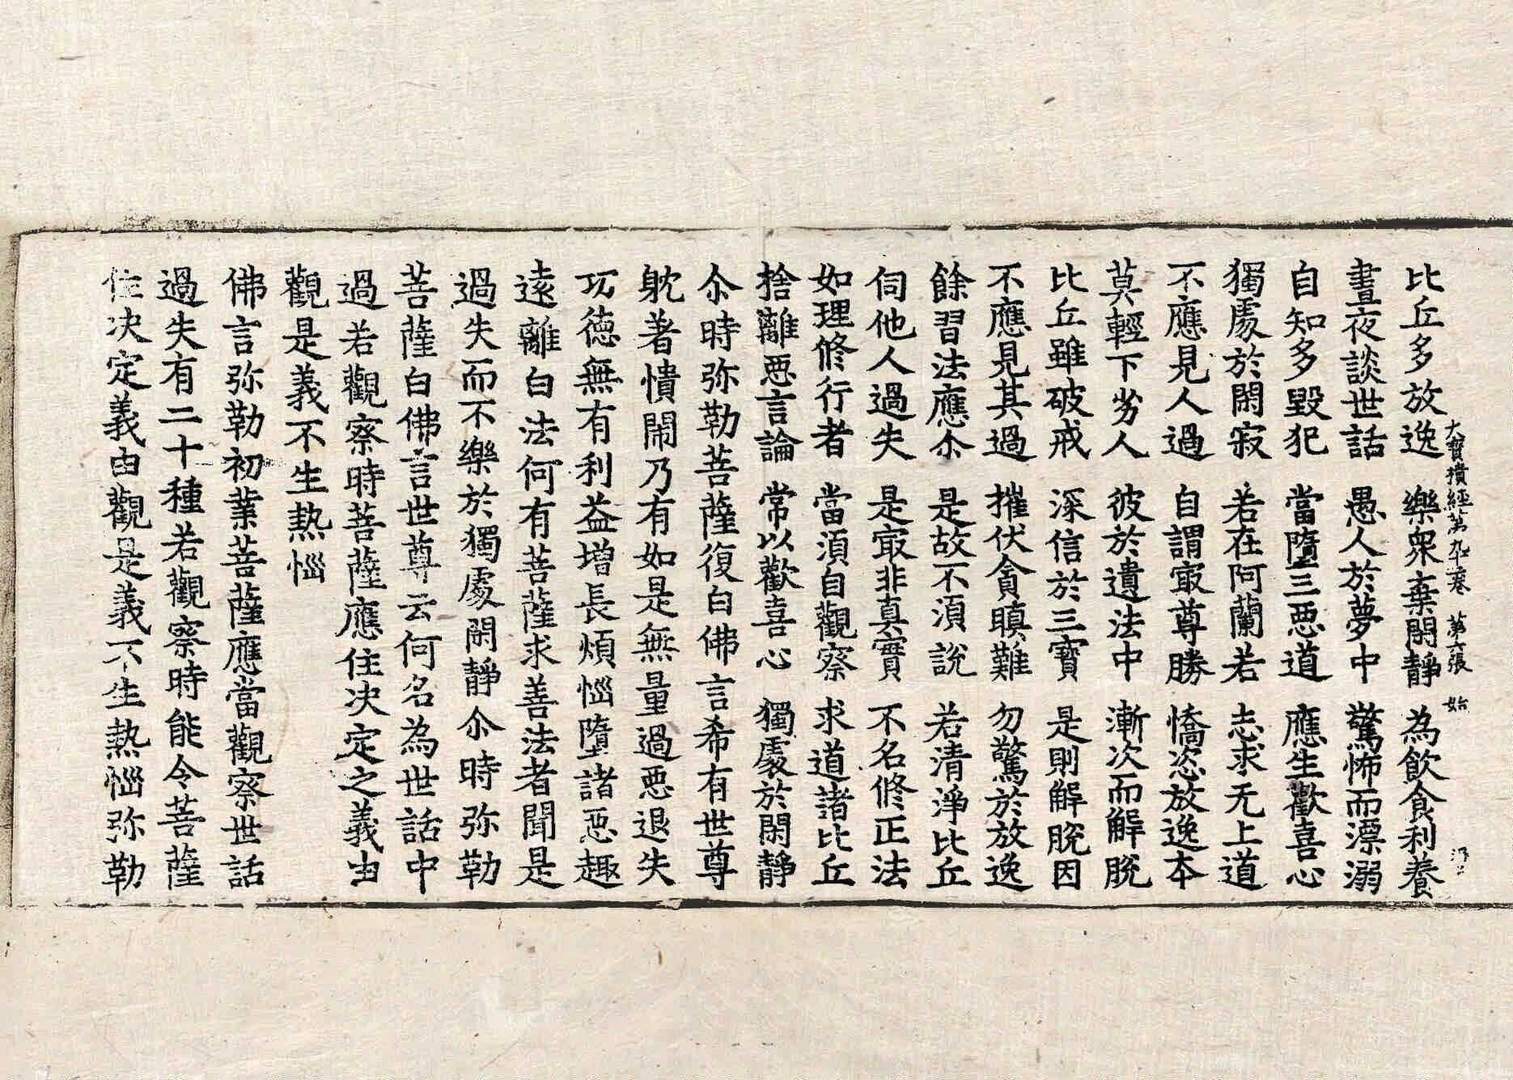 大寶積經第九十二卷 第六張 始
比丘多放逸 樂衆弃閑靜 為飲食利養
晝夜談世話 愚人於夢中 驚怖而漂溺
自知多毀犯 當墮三惡道 應生歡喜心
獨處於閑寂 若在阿蘭若 志求无上道
不應見人過 自謂㝡尊勝 憍恣放逸本
莫輕下劣人 彼於遺法中 漸次而解脫
比丘雖破戒 深信於三寶 是則解脫因
不應見其過 摧伏貪瞋難 勿驚於放逸
餘習法應尒 是故不須說 若清淨比丘
伺他人過失 是㝡非真實 不名修正法
如理修行者 當須自觀察 求道諸比丘
捨離惡言論 常以歡喜心 獨處於閑靜
尒時弥勒菩薩復白佛言希有世尊
躭著憒閙乃有如是無量過惡退失
功德無有利益增長煩惱墮諸惡趣
遠離白法何有菩薩求善法者聞是
過失而不樂於獨處閑靜尒時弥勒
菩薩白佛言世尊云何名為世話中
過若觀察時菩薩應住决定之義由
觀是義不生熱惱
佛言弥勒初業菩薩應當觀察世話
過失有二十種若觀察時能令菩薩
住决定義由觀是義不生熱惱弥勒